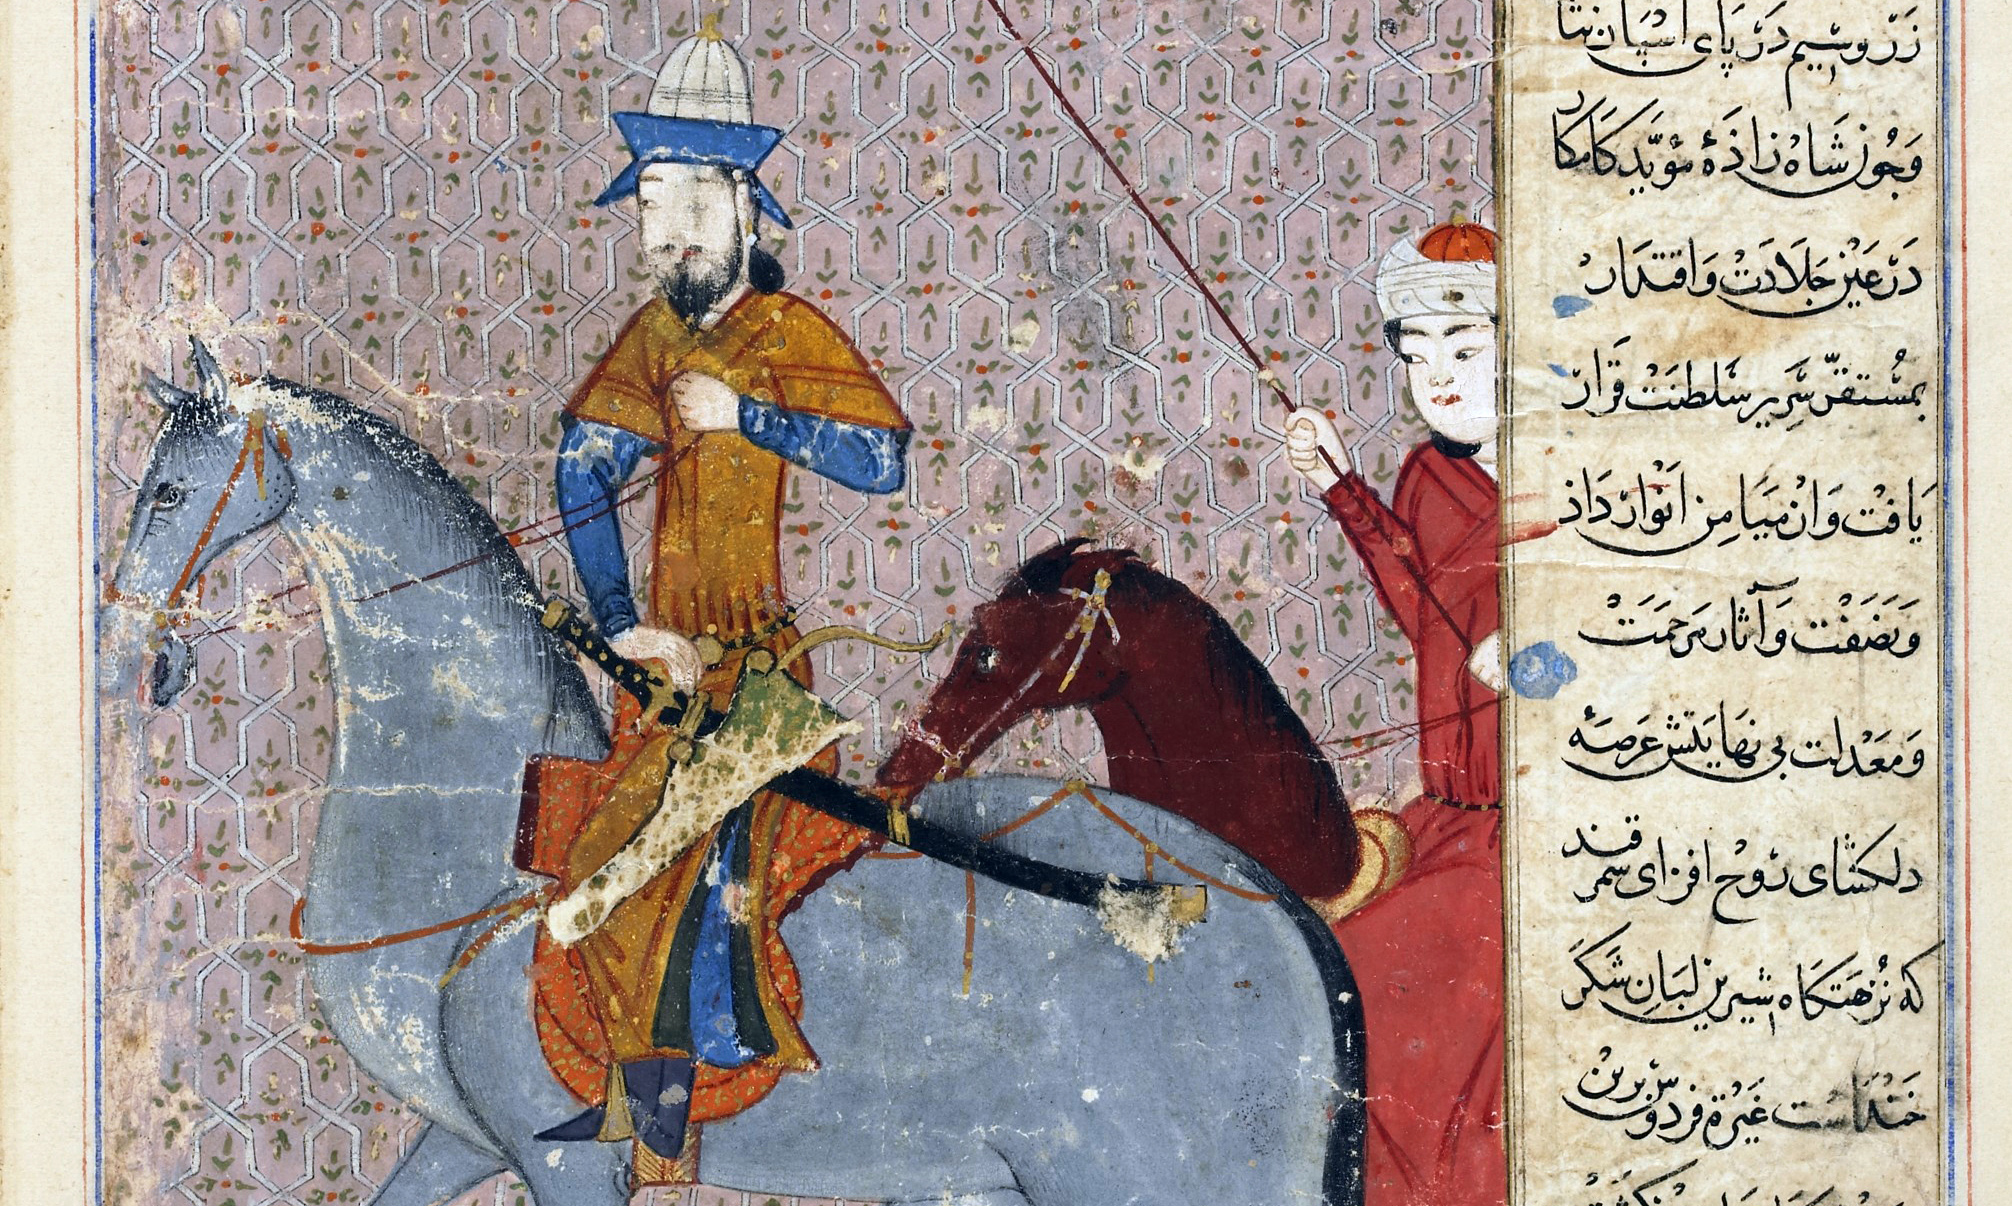 زر و سیم در پای اسپان نثا
ر
وچون شاه زاذهٔ مؤیّد کامکار
در عین جلادت و اقتدار
بمستقرّ سریر سلطنت قرار
یافت وان میامن انوار داذ
و نصفت و آثار مرحمت
و معدلت بی نهایتش عرصهٔ
دلکشای روح افزای سمرقند
که نزهتکاه شیرین لبان شکر
خنداست غیرة فردوس برین